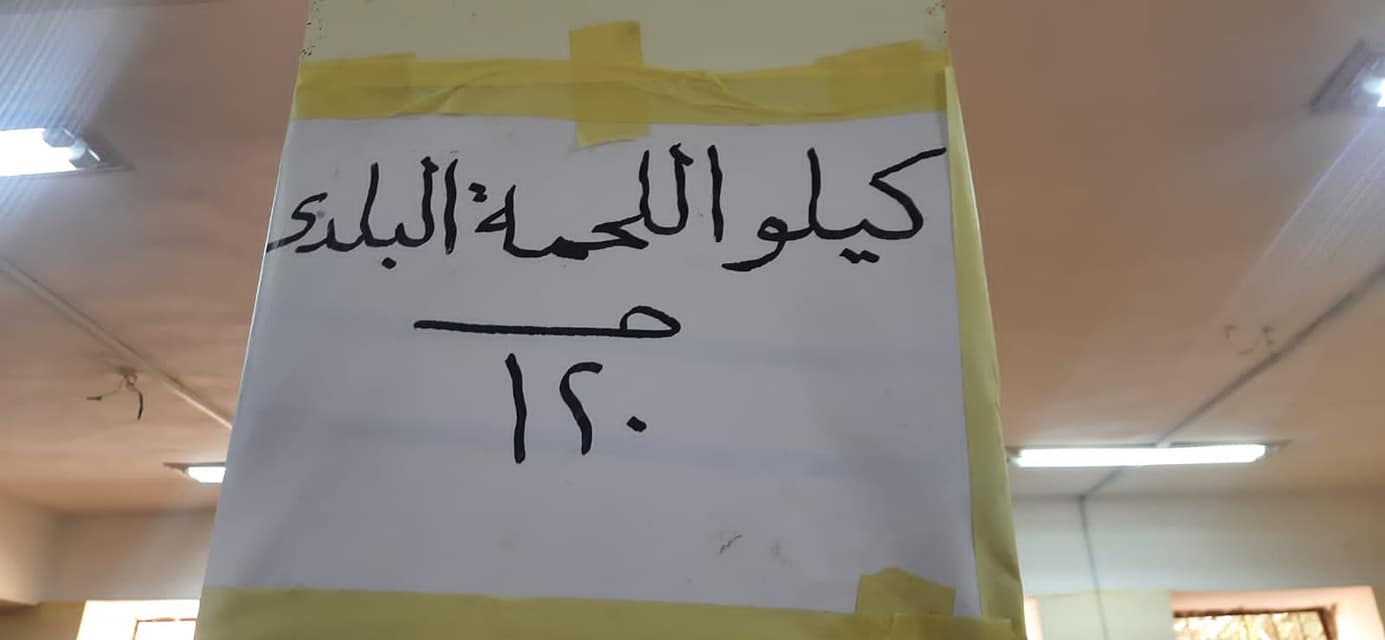 كيلو اللحمة البلدى
جـ
١٢٠